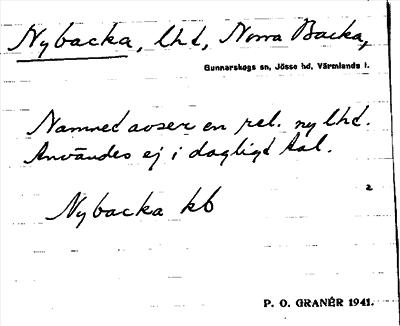 Nybacka, lhd, Norra Backa,
Gunnarskogs sn, Jösse hd, Värmlands l.
Namnet avser en rel. ny lhd.
Användes ej i dagligt tal.
2
Nybacka kb
P. O. GRANÉR 1941.